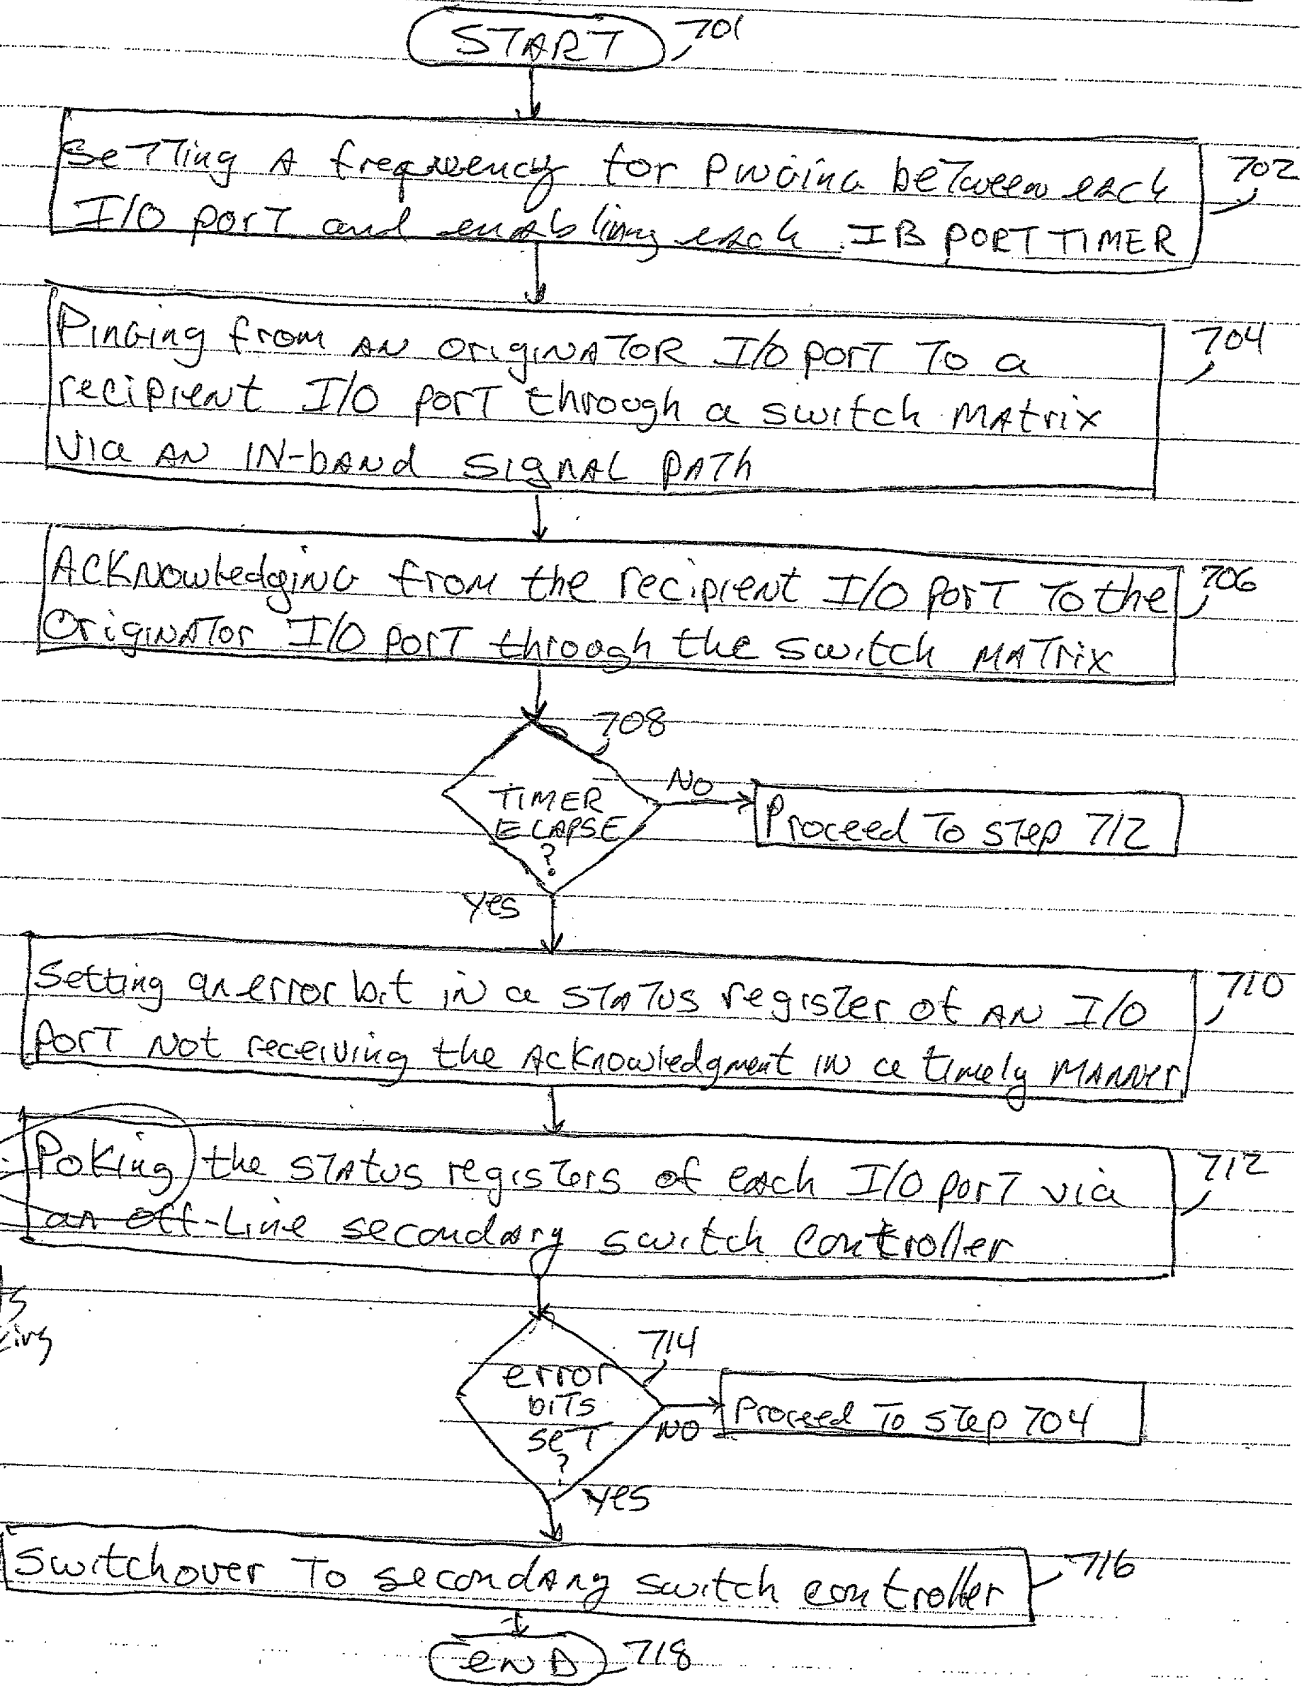 START 701
Setting A frequency for Pinging between each 702
I/O PORT and enabling each IB PORT TIMER
Pinging from AN ORIGINATOR I/O PORT TO a 704
recipient I/O PORT through a switch MAtrix
via AN IN-bAND SIgNAL PATh
ACKNowledging from the recipient I/O PORT To the 706
OriginATor I/O PORT through the switch MATrix
708
TIMER
ELAPSE
?
NO
Proceed To step 712
Yes
Setting an error bit in a STATUS register of AN I/O 710
PORT NOT receiving the AcKNowledgment IN a timely MANNer
Poking the STATUS registers of each I/O PORT via 712
an off-Line secondary switch controller
714
error
biTs
seT
?
NO
Proceed To step 704
Yes
Switchover To secondary switch controller 716
END 718